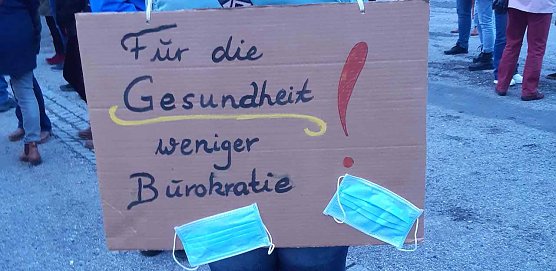 Für die
Gesundheit
weniger
Bürokratie
!